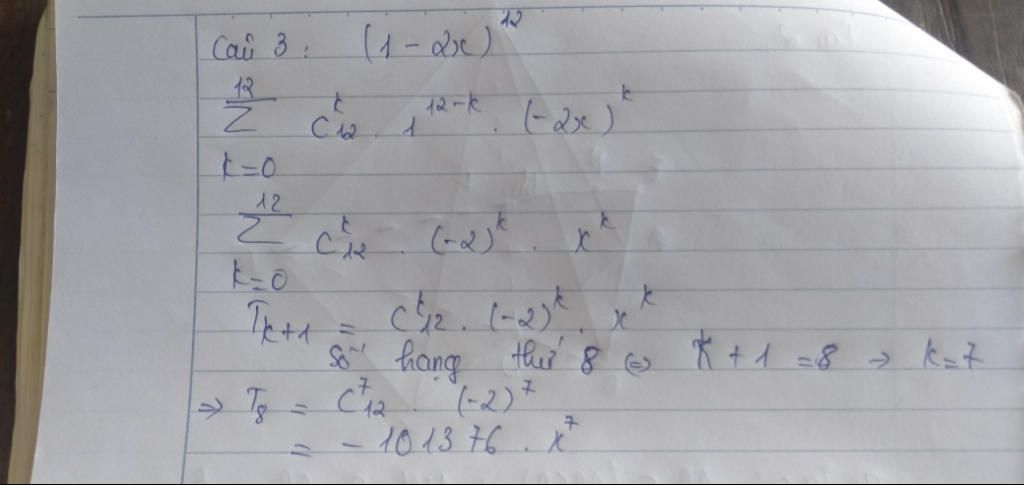 Câu 3 : (1 - 2x)^12
12
Σ C^k_12 . 1^12-k . (-2x)^k
k=0
12
Σ C^k_12 . (-2)^k . x^k
k=0
T_k+1 = C^k_12 . (-2)^k . x^k
Số hạng thứ 8 ⇔ k + 1 = 8 → k=7
⇒ T_8 = C^7_12 . (-2)^7
= - 101376 . x^7